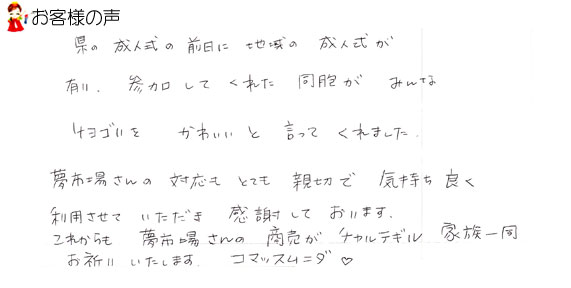 お客様の声
県の 成人式の 前日に 地域の 成人式が
有り、 参加して くれた 同胞が みんな
チョゴリを かわいいと 言って くれました。
夢市場さんの 対応も とても 親切で 気持ち良く
利用させて いただき 感謝して おります。
これからも 夢市場さんの 商売が チャルテギル 家族一同
お祈り いたします。 コマッスムニダ♡